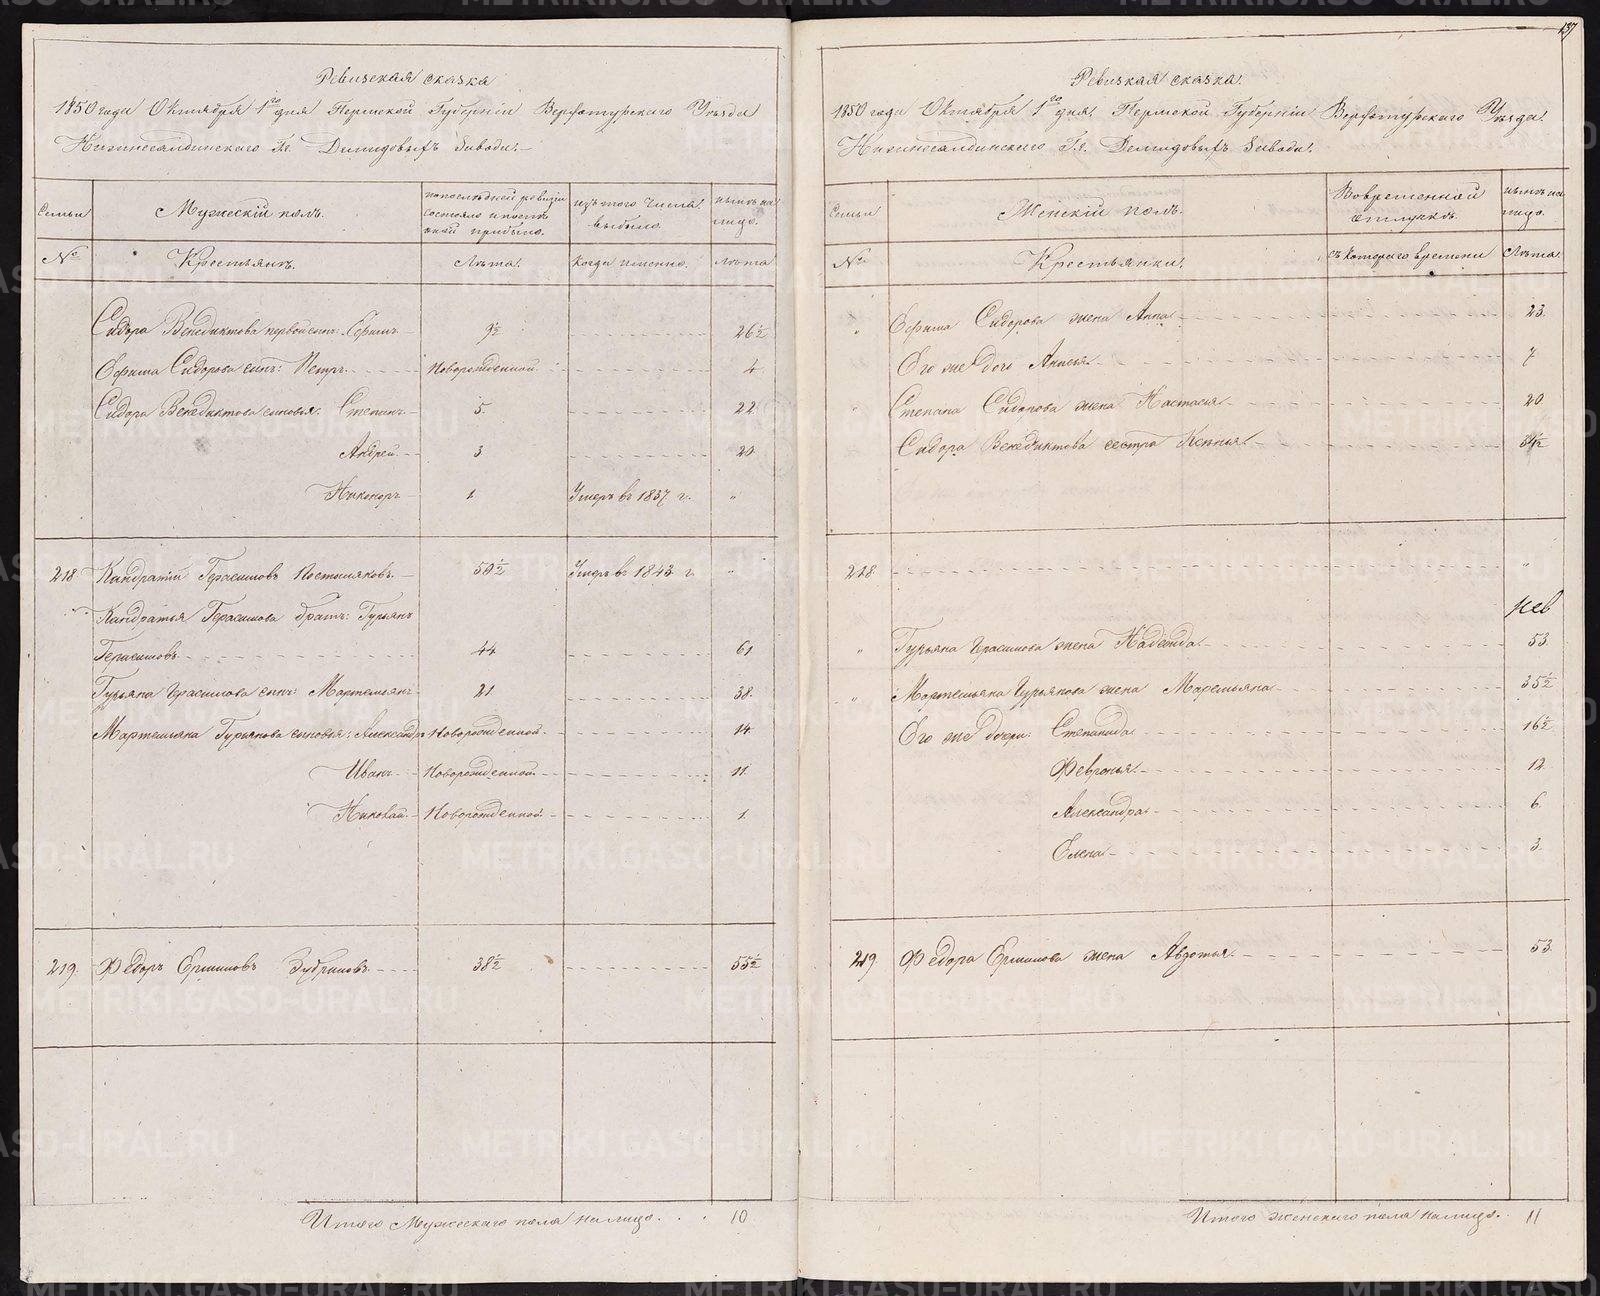 137
Ревизская сказка
1850 года Октября 1го дня Пермской Губернiи Верхотурскаго Уѣзда
Нижнесалдинскаго Гг. Демидовыхъ Завода.
Семьи
Мужескiй полъ.
по послѣдней ревизiи состояло и после оной прибыло.
изъ того числа выбыло.
нынѣ на лицо.
№
Крестьянъ.
Лѣта.
Когда именно.
Лѣта
Сидора Венедиктова первой сынъ: Ефимъ 9½ 26½
Ефима Сидорова сынъ: Петръ Новорожденной 4
Сидора Венедиктова сыновья: Степанъ 5 22
Андрей 3 20
Никоноръ 1 Умеръ въ 1837 г. "
218 Кандратiй Герасимовъ Постниковъ 50½ Умеръ въ 1843 г. "
Кандратья Герасимова братъ: Гурьянъ
Герасимовъ 44 61
Гурьяна Герасимова сынъ: Мартемьянъ 21 38
Мартемьяна Гурьянова сыновья: Александръ Новорожденной 14
Иванъ Новорожденной 11
Николай Новорожденной 1
219. Федоръ Ермиловъ Зубриловъ 38½ 55½
Итого Мужескаго пола на лицо 10
Ревизкая сказка.
1850 года Октября 1го дня. Пермской Губернiи Верхотурскаго Уѣзда.
Нижнесалдинскаго Гг. Демидовыхъ Завода.
Семьи
Женскiй полъ.
Во временной отлучкѣ.
нынѣ на лицо.
№
Крестьянки.
съ котораго времени
Лѣта.
" Ефима Сидорова жена Анна 23
Его же дочь Анисья 7
" Степана Сидорова жена Настасья 20
Сидора Венедиктова сестра Ксенья 34½
218 "
" Гурьяна Герасимова жена Надежда 53
" Мартемьяна Гурьянова жена Маремьяна 35½
Его же дочери: Степанида 16½
Февронья 12
Александра 6
Елена 3
219 Федора Ермилова жена Авдотья 53
Итого женскаго пола на лицо. 11
METRIKI.GASO-URAL.RU